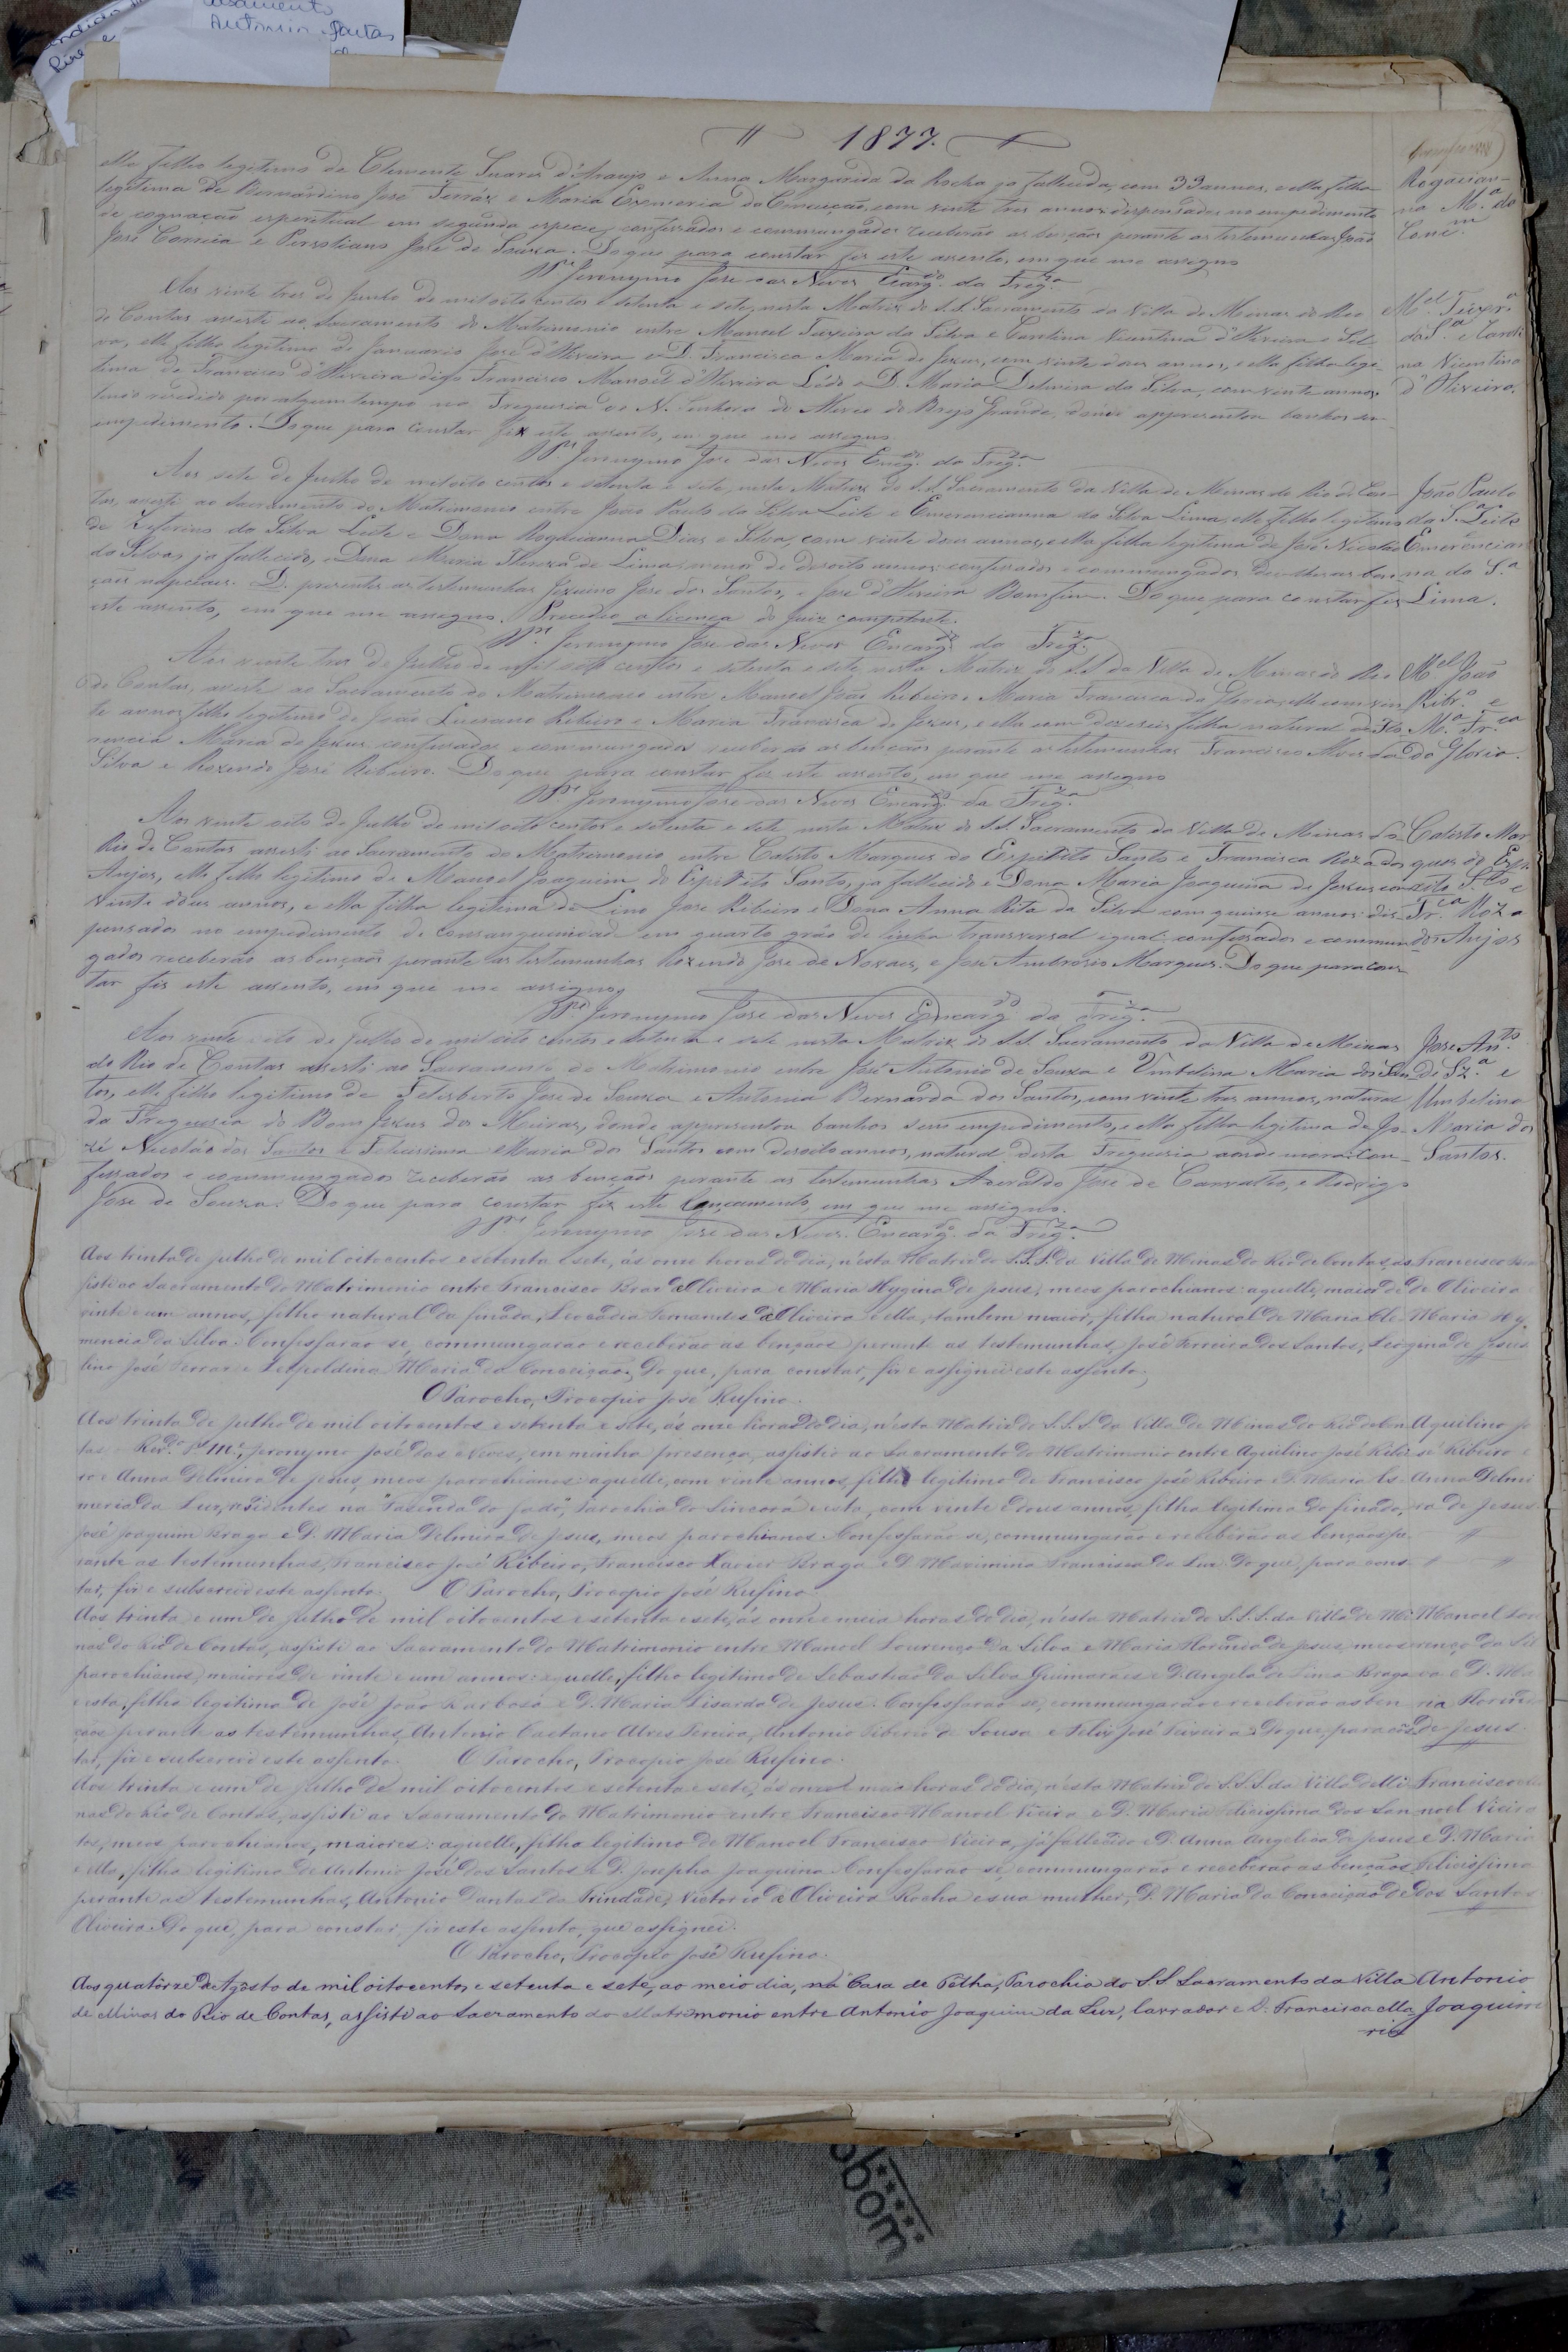 1877.
elle filho legitimo de Clemente Suares d'Araujo e Anna Margarida da Rocha ja fallecida, com 39 annos, e ella filha
legitima de Bernardino José Ferráz e Maria da Conceição, com vinte tres annos dispensados no empedimento
de cognação esperitual em segunda especie, confessados e commungados receberão as bençãos perante as testemunhas João
José Correia e José de Souza. Do que para constar fiz este assento, em que me assigno
Jeronymo José das Neves Encarg.do da Freg.za
Rogacian-
na M.a da
Conc.m
Aos vinte tres de Junho de mil oito centos e setenta e sete, nesta Matriz do S.S. Sacramento da Villa de Minas do Rio
de Contas assisti ao Sacramento do Matrimonio entre Manoel Teixeira da Silva e Vicentina d'Oliveira e Sil-
va, elle filho legitimo de Januario José d'Oliveira e D. Francisca Maria de Jezus, com vinte dous annos, e ella filha legi-
tima de Francisco d'Oliveira digo Francisco Manoel d'Oliveira Lédo e D. Maria da Silva, com vinte annos
tendo rezidido por algum tempo na Freguesia de N. Senhora do do Brejo Grande, donde appresentou banhos sem
empedimento. Do que para constar fiz este assento, em que me assigno.
Jeronymo José das Neves Encg.do da Freg.za
M.el Teixr.a
da S.a e
na Vicentina
d'Oliveira.
Aos sete de Julho de mil oito centos e setenta e sete, nesta Matriz do S.S. Sacramento da Villa de Minas do Rio de Con-
tas, assisti ao Sacramento do Matrimonio entre João Paulo da Silva Leite e Emerencianna da Silva Lima, elle filho legitimo
de Zeferino da Silva Leite e Dona Rogacianna Dias e Silva, com vinte dous annos, e ella filha legitima de José Nicolao
da Silva, ja fallecido, e Dona Maria Thereza de Lima, menor de dezoito annos: confessados e commungados dei-lhes as ben-
çãos nupciaes. D. presentes as testemunhas José dos Santos, e José d'Oliveira Bomfim. Do que para constar fiz
este assento, em que me assigno. Precedeo a licença do Juiz competente.
Jeronymo José das Neves Encarg.do da Freg.za
João Paulo
da S.a Leite
Emerencian
na da S.a
Lima.
Aos vinte tres de Julho de mil oito centos e setenta e sete nesta Matriz do S.S. da Villa de Minas do Rio
de Contas, assisti ao Sacramento do Matrimonio entre Manoel João Ribeiro e Maria Francisca da Gloria, elle com vin-
te annos filho legitimo de João Luciano Ribeiro e Maria Francisca de Jezus, e ella com dezeseis filha natural de Flo-
rencia Maria de Jezus, confessados e commungados receberão as bençãos perante as testemunhas Francisco Alves da
Silva e Rozendo José Ribeiro. Do que para constar fiz este assento, em que me assigno
Jeronymo José das Neves Encarg.do da Freg.za
M.el João
Ribr.o e
M.a Fr.ca
da Gloria.
Aos vinte oito de Julho de mil oito centos e setenta e sete, nesta Matriz do S.S. Sacramento da Villa de Minas do
Rio de Contas assisti ao Sacramento do Matrimonio entre Calisto Marques do Espirito Santo e Francisca Roza dos
Anjos, elle filho legitimo de Manoel Joaquim do Espirito Santo, ja fallecido e Dona Maria Joaquina de Jezus com
vinte dous annos, e ella filha legitima de Lino José Ribeiro e Dona Anna Rita da Silva com quinse annos: dis-
pensados no empedimento de consanguinidad em quarto gráo de linha transversal igual; confessados e commun-
gados receberão as bençãos perante as testemunhas Rozendo José de Novaes, e José Ambrosio Marques. Do que para cons-
tar fiz este assento, em que me assigno
Jeronymo José das Neves Encarg.do da Freg.za
Calisto Mar
ques do Espi
rito S.to e
Fr.ca Roza
dos Anjos
Aos vinte oito de Julho de mil oito centos e setenta e sete nesta Matriz do S.S. Sacramento da Villa de Minas
do Rio de Contas assisti ao Sacramento do Matrimonio entre José Antonio de Souza e Umbelina Maria dos San-
tos, elle filho legitimo de Felisberto José de Souza e Antonia Bernarda dos Santos, com vinte tres annos, natural
da Freguesia do Bom Jezus dos Meiras, donde appresentou banhos sem empedimento, e ella filha legitima de Jo-
zé Nicoláo dos Santos e Feliciana Maria dos Santos com desoito annos, natural desta Freguesia aonde mora: con-
fessados e commungados receberão as bençãos perante as testemunhas José de Carvalho, e Rodrigo
José de Souza. Do que para constar fiz este lançamento, em que me assigno.
Jeronymo José das Neves. Encarg.do da Freg.za
José An.to
de Sz.a e
Umbelina
Maria dos
Santos.
Aos trinta de julho de mil oitocentos e setenta e sete, ás onze horas do dia, n'esta Matriz do S.S.S. da Villa de Minas do Rio de Contas, as-
sisti ao Sacramento do Matrimonio entre Francisco Braz d'Oliveira e Maria Hygina de Jesus, meos parochianos: aquelle, maior de
vinte e um annos, filho natural da finada, Leocadia Fernandes d'Oliveira e ella, tambem maior, filha natural de Maria Cle-
mencia da Silva. Confessarão-se, commungarão e receberão as bençãos perante as testemunhas, José Ferreira dos Santos,
lino José Ferraz e Leopoldina Maria da Conceição. Do que, para constar, fiz e assignei este assento.
O Parocho, Procopio José Rufino.
Francisco Braz
de Oliveira
Maria Hy-
gina de Jesus
Aos trinta de julho de mil oitocentos e setenta e sete, ás onze horas do dia, n'esta Matriz do S.S.S. da Villa de Minas do Rio de Con-
tas o Rev.do P.e M.e Jeronymo José das Neves, em minha presença, assistio ao Sacramento do Matrimonio entre Aquilino José Ribei-
ro e Anna Delmira de Jesus, meos parochianos: aquelle, com vinte annos, filho legitimo de Francisco José Ribeiro e D. Maria Es-
meria da Luz, residentes na Fazenda do Parochia do Sincorá e esta, com vinte e dous annos, filha legitima do finado,
José Joaquim Braga e D. Maria Delmira de Jesus, meos parochianos. Confessarão-se, commungarão e receberão as bençãos pe-
rante as testemunhas, Francisco José Ribeiro, Francisco Xavier Braga e D. Maximina Francisca da Luz. Do que, para cons-
tar, fiz e subscrevi este assento. O Parocho, Procopio José Rufino.
Aquilino Jo
sé Ribeiro e
Anna Delmi
ra de Jesus
Aos trinta e um de julho de mil oitocentos e setenta e sete, ás onze e meia horas do dia, n'esta Matriz do S.S.S. da Villa de Mi-
nas do Rio de Contas, assisti ao Sacramento do Matrimonio entre Manoel Lourenço da Silva e Maria Florinda de Jesus, meos
parochianos, maiores de vinte e um annos: aquelle, filho legitimo de Sebastião da Silva Guimarães e D. Angela de Lima Braga
e esta, filha legitima de José João Barbosa e D. Maria Lisarda de Jesus. Confessarão-se, commungarão e receberão as ben-
çãos perante as testemunhas, Antonio Caetano Alves Pereira, Antonio Tiberio de Sousa e Felix José Teixeira. Do que, para cons-
tar, fiz e subscrevi este assento. O Parocho, Procopio José Rufino.
Manoel Lou
renço da Sil
va e D. Ma
ria Florin
de Jesus.
Aos trinta e um de julho de mil oitocentos e setenta e sete, ás onze e meia horas do dia, n'esta Matriz do S.S.S. da Villa de Mi-
nas do Rio de Contas, assisti ao Sacramento do Matrimonio entre Francisco Manoel Vieira e D. Maria Felicissima dos San-
tos, meos parochianos, maiores: aquelle, filho legitimo de Manoel Francisco Vieira, já fallecido e D. Anna Angelica de Jesus
e ella, filha legitima de Antonio José dos Santos e D. Josepha Joaquina. Confessarão-se, commungarão e receberão as bençãos
perante as testemunhas, Antonio Dantas da Trindade, Victorio de Oliveira Rocha e sua mulher, D. Maria da Conceição de
Oliveira. Do que, para constar, fiz este assento, que assignei.
O Parocho, Procopio José Rufino.
Francisco Ma
noel Vieira
e D. Maria
Felicissima
dos Santos
Aos quatorze de Agôsto de mil oitocentos e setenta e sete, ao meio dia, na Casa de Têlha, Parochia do S.S. Sacramento da Villa
de Minas do Rio de Contas, assisti ao Sacramento do Matrimonio entre Antonio Joaquim da Luz, lavrador e D. Francisca Ma
ria
Antonio
Joaquim